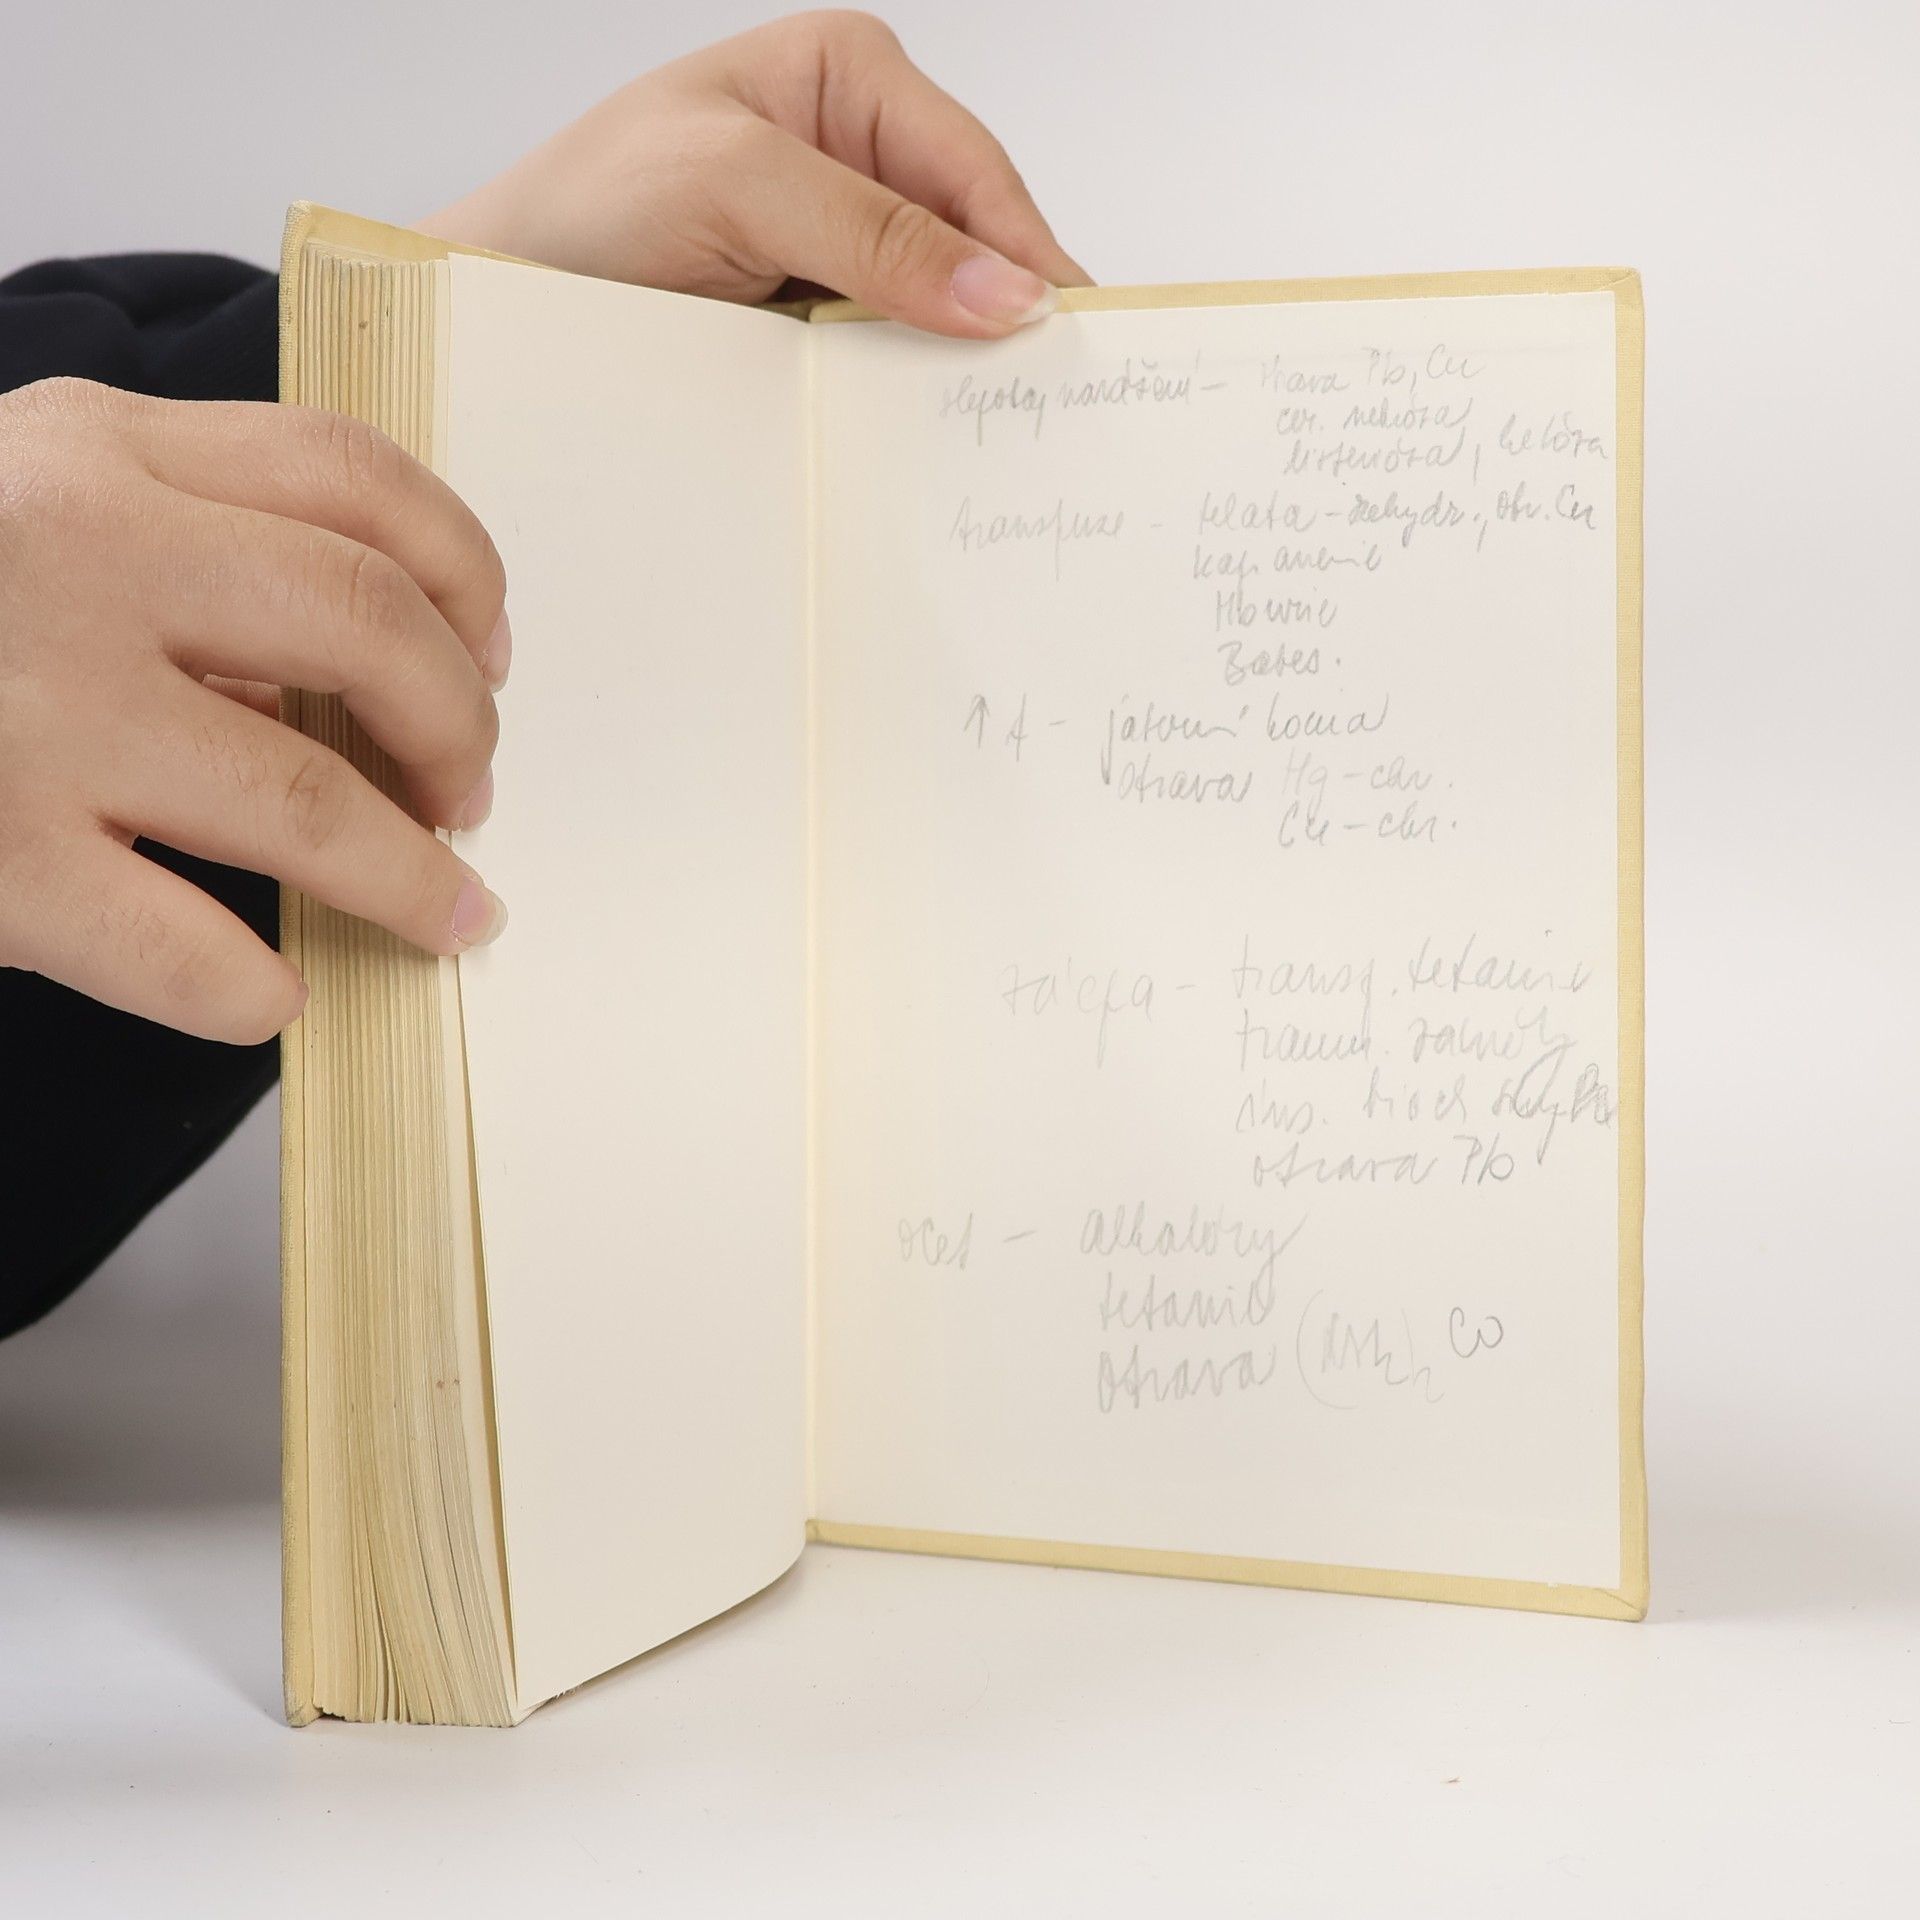 slepota, narážení – otrava Pb, Cu
cer. nekróza
listerióza, ketóza
transfuze – telata – dehydr., otr. Cu
kap. anemie
Hburie
Babes.
↑ t – jaterní koma
otrava Hg – chr.
Cu – chr.
zácpa – transp. tetanie
traum. záněty
ins. bioch
otrava Pb
ocet – alkalózy
tetanie
otrava (NH₂)₂ CO